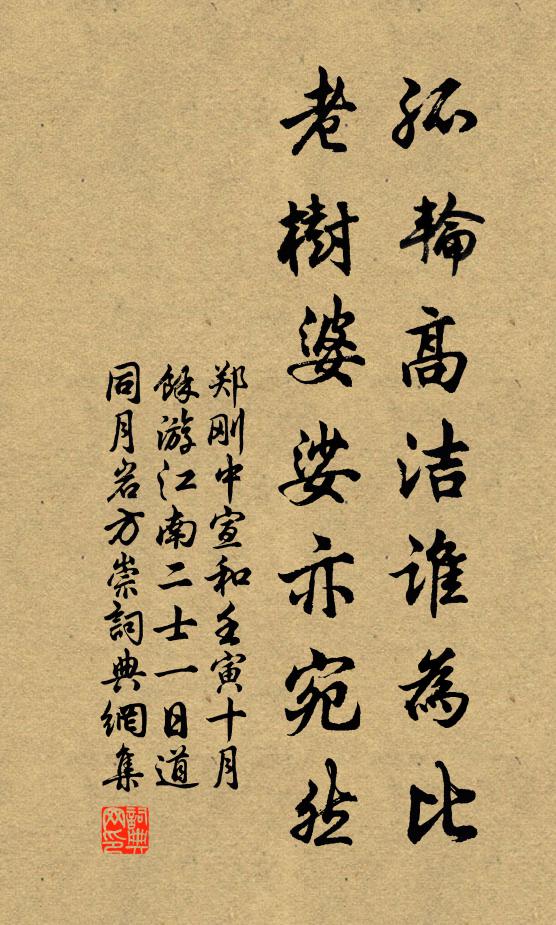 孤輪高洁誰為比
老樹婆娑亦宛然
郑刚中宣和壬寅十月
餘游江南二士一日道
同月岩方崇詞典網集
詞典网印